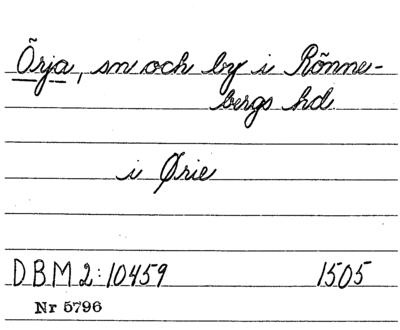 Örja, sn och by i Rönne-
bergs hd
i Ørie
DBM2:10459 1505
Nr 5796